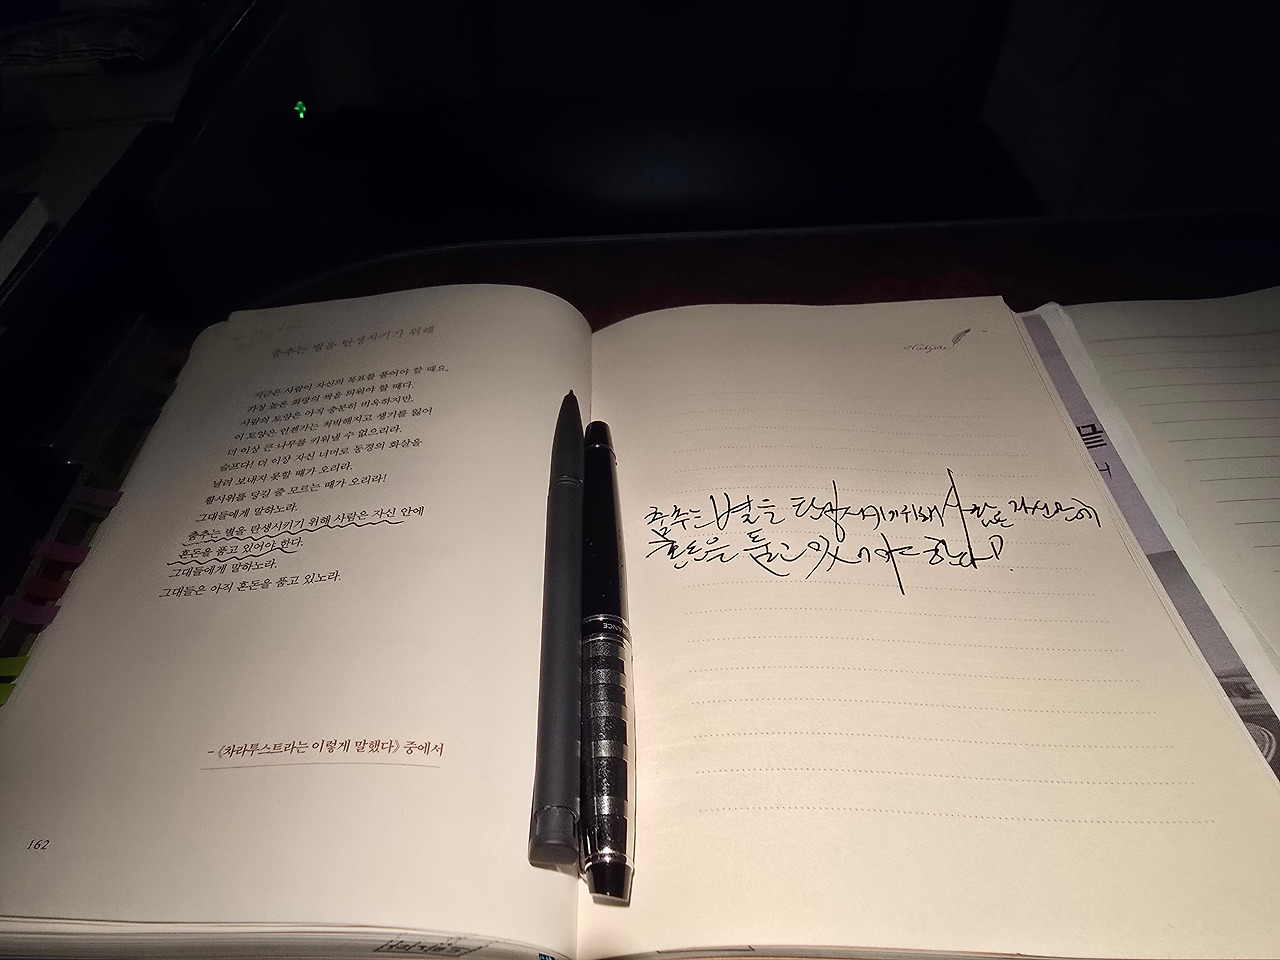 춤추는 별을 탄생시키기 위해
지금은 사람이 자신의 목표를 품어야 할 때요.
가장 높은 희망의 싹을 틔워야 할 때다.
사람의 토양은 아직 충분히 비옥하지만,
이 토양은 언젠가는 척박해지고 생기를 잃어
더 이상 큰 나무를 키워낼 수 없으리라.
슬프다! 더 이상 자신 너머로 동경의 화살을
날려 보내지 못할 때가 오리라.
활시위를 당길 줄 모르는 때가 오리라!
그대들에게 말하노라.
춤추는 별을 탄생시키기 위해 사람은 자신 안에
혼돈을 품고 있어야 한다.
그대들에게 말하노라.
그대들은 아직 혼돈을 품고 있노라.
- 《차라투스트라는 이렇게 말했다》 중에서
162
Nietzsche
춤추는 별을 탄생시키기위해 사람은 자신안에
혼돈을 품고 있어야 한다.